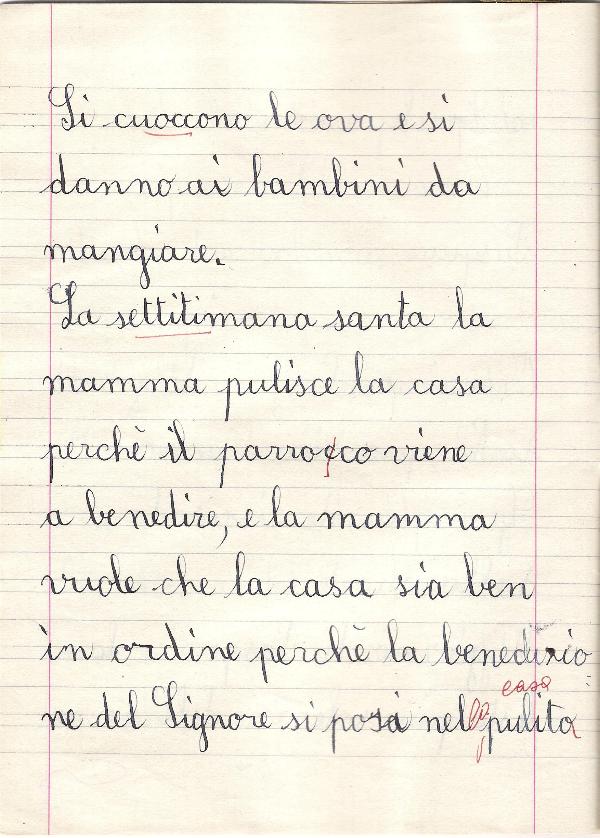 Si cuoccono le ova e si
danno ai bambini da
mangiare.
La settitimana santa la
mamma pulisce la casa
perchè il parrocco viene
a benedire, e la mamma
vuole che la casa sia ben
in ordine perchè la benedizio
casa
ne del Signore si posa nel la pulita